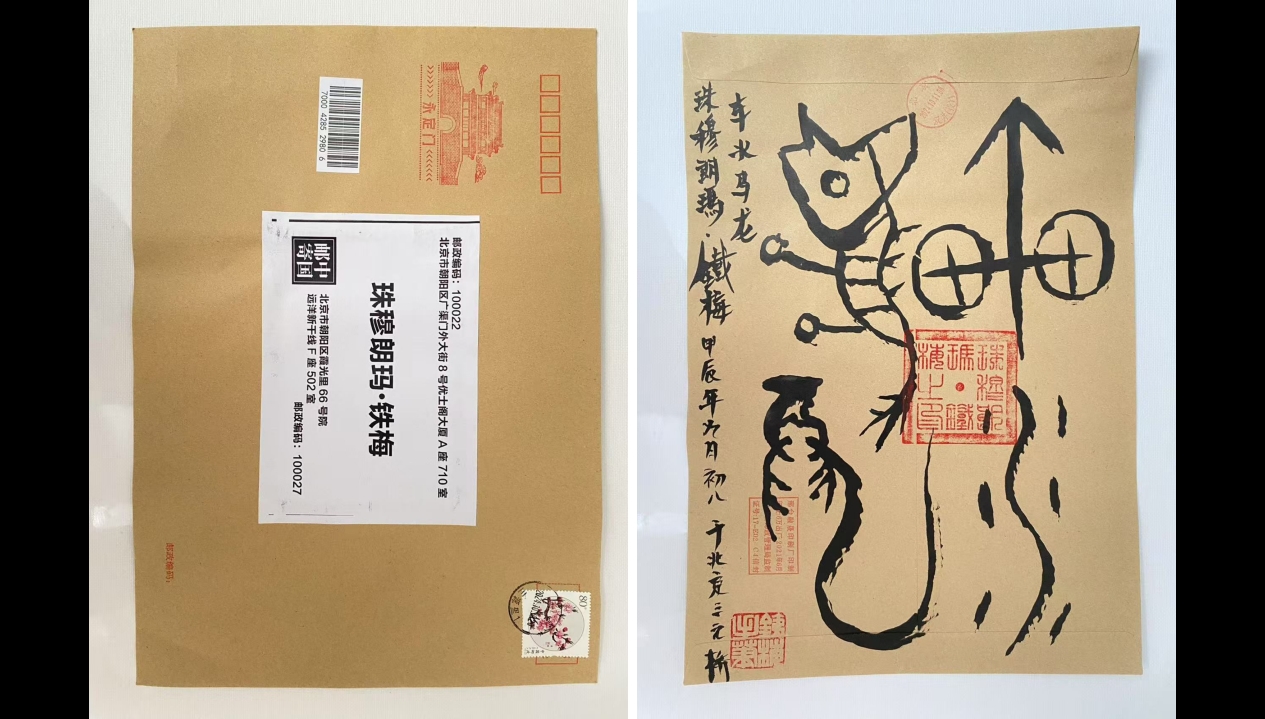 永定门
7000 4285 2980 6
邮政编码：100022
北京市朝阳区广渠门外大街 8 号优士阁大厦 A 座 710 室
珠穆朗玛·铁梅
中国邮寄
北京市朝阳区霞光里 66 号院
远洋新干线 F 座 502 室
邮政编码：100027
邮政编码：
80
车水马龙
珠穆朗瑪·鐵梅 甲辰年六月初八 于北京三元桥
珠穆朗
瑪·鐵
梅之印
鐵梅
手築